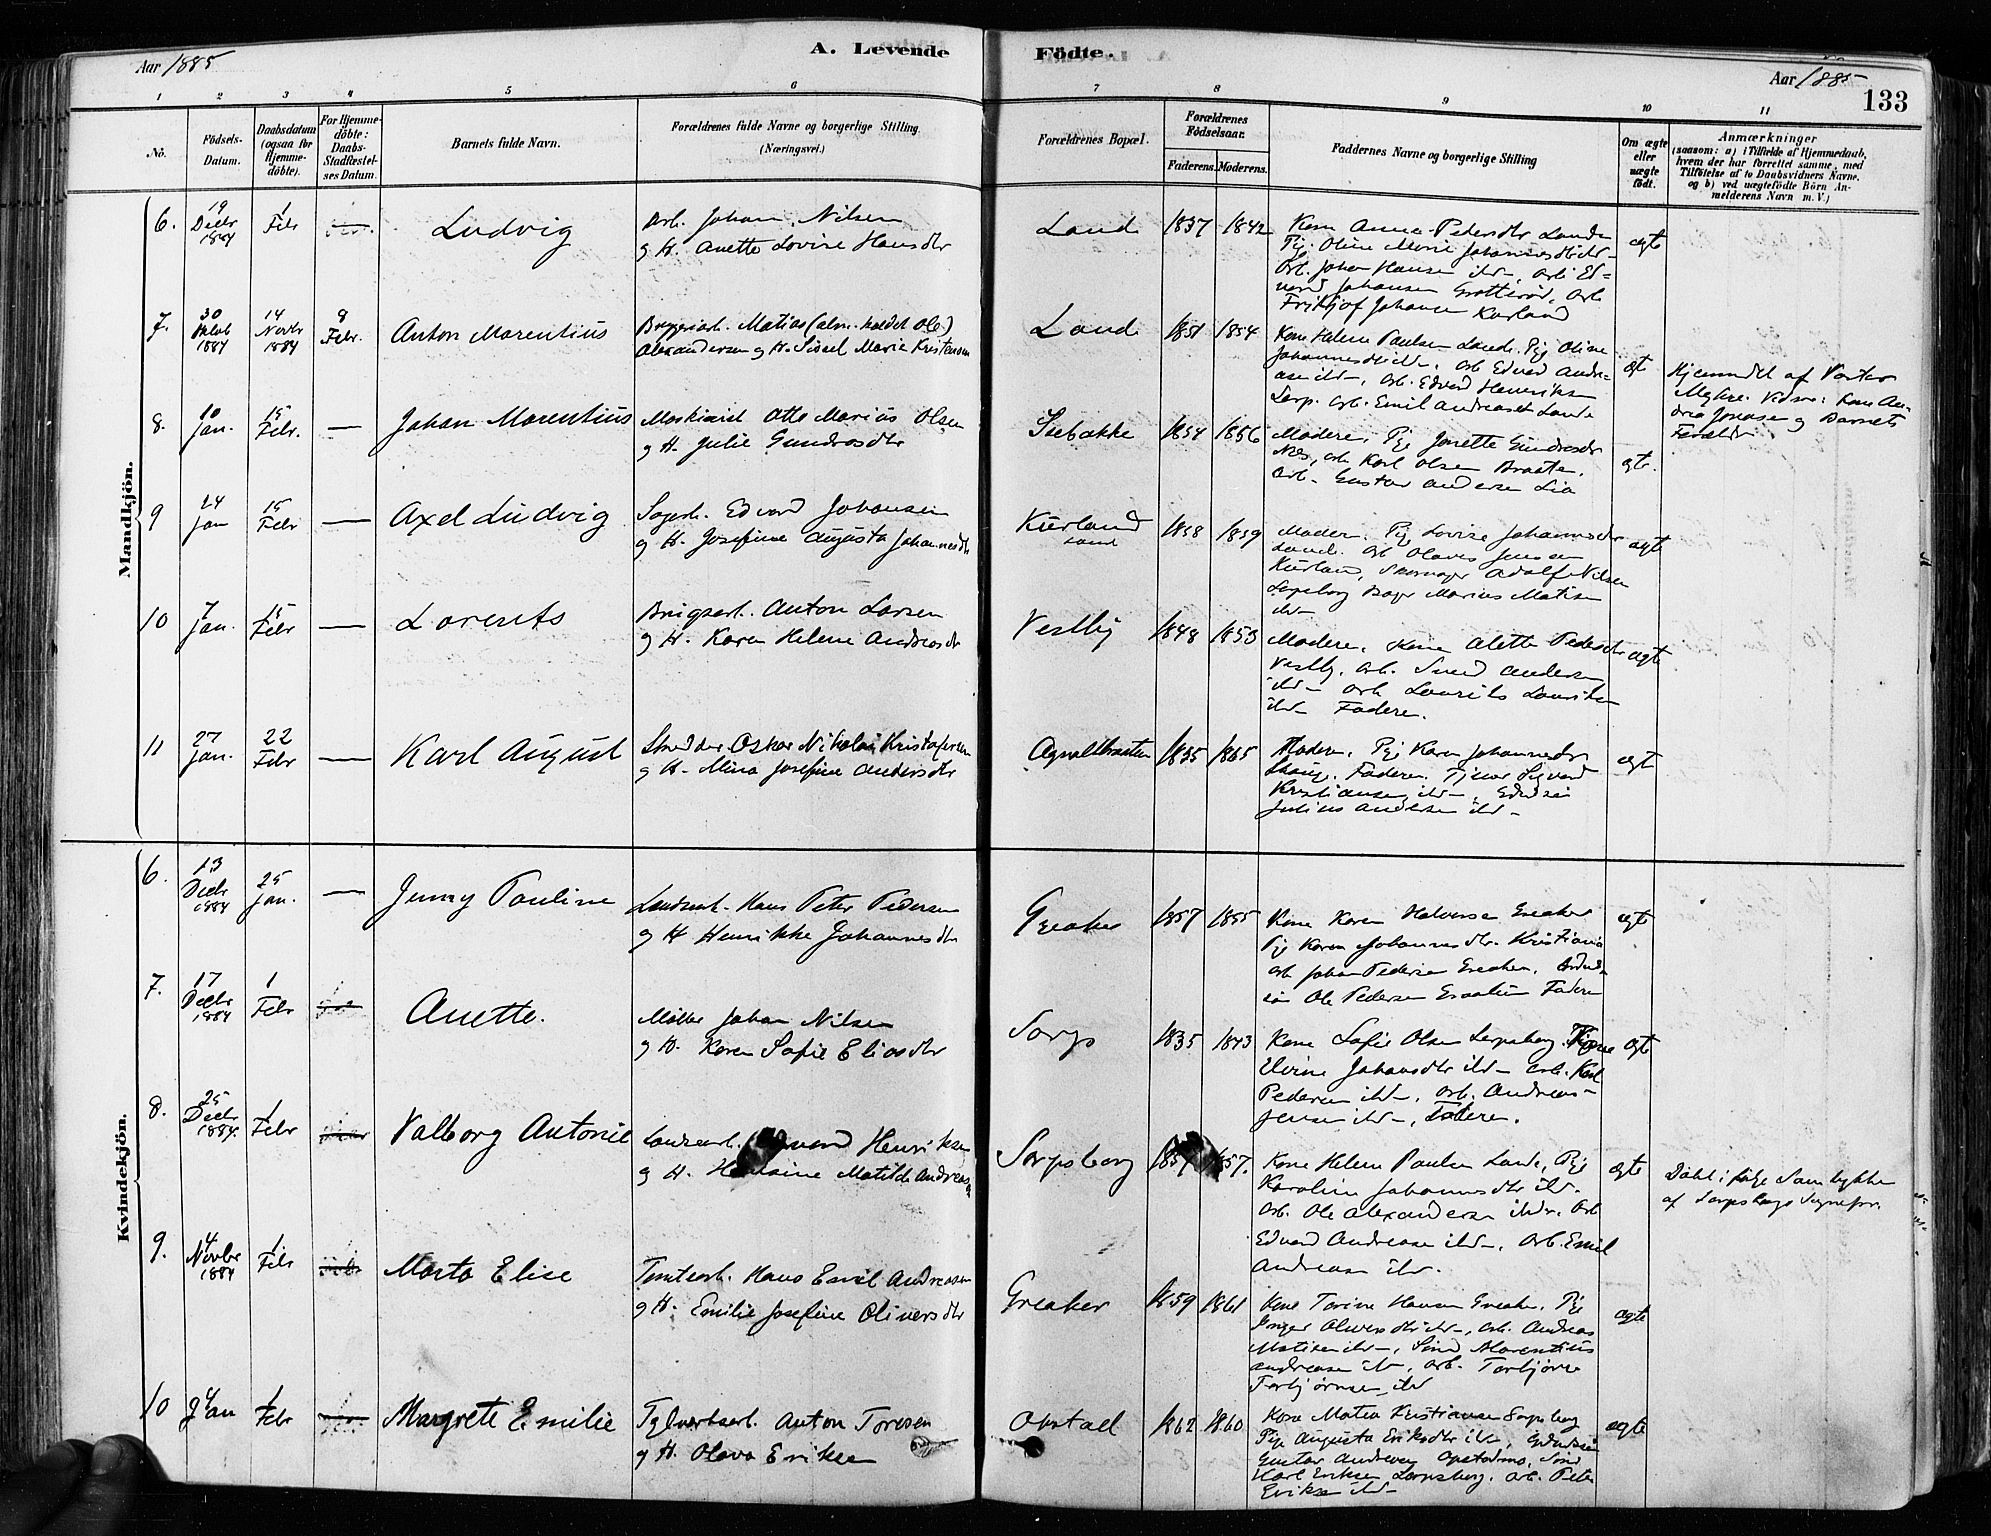 A. Levende
Födte.
Aar 1885
Aar 1885
133
1 2 3 4 5 6 7 8 9 10 11
No.
Födsels-
Datum.
Daabsdatum
(ogsaa for
Hjemme-
döbte).
For Hjemme-
döbte:
Daabs-
Stadfæstel-
ses Datum.
Barnets fulde Navn.
Forældrenes fulde Navne og borgerlige Stilling.
(Næringsvei.)
Forældrenes Bopæl.
Forældrenes
Födselsaar.
Faderens. Moderens.
Faddernes Navne og borgerlige Stilling
Om ægte
eller
uægte
födt.
Anmærkninger
(saasom: a) i Tilfælde af Hjemmedaab,
hvem der har forrettet samme, med
Tilföielse af to Daabsvidners Navne,
og b) ved uægtefödte Börn An-
melderens Navn m. V.)
Mandkjön.
6.
19
Decbr
1884
1
Febr
Ludvig
Arb. Johan Nilsen
og H. Anette Lovise Hansdtr
Lande
1837 1842
Kone Anna Pedersdtr Lande
Pige Oline Marie Johannesdtr ibd-
Arb. Johan Hansen ibd- Arb Ed-
vard Johansen Grotterød, Arb
Fritjof Johansen Kurland
ægte
7.
30
Oktob
1884
14
Novbr
1884
8
Febr.
Anton Marentius
Bryggeriarb. Matias (alm. kaldet Ole)
Alexandersen og H. Sissel Marie Kristensen
Lande
1851 1854
Kone Helene Paulsen Lande. Pige Oline
Johannesdtr ibd-, Arb Edvard Andre-
asen ibd-, Arb. Edvard Henriksen
Sarp. Arb. Emil Andreasen Lande
ægt
Hjemmedøbt af
Barnets
8.
10
Jan.
15
Febr.
Johan Marentius
Maskinist Otto Marius Olsen
og H. Julie Gundrosdtr
Isebakke
1854 1856
Modere, Pige Janette Gundrosdtr
Næs, Arb Karl Olsen Braaten,
Arb. Gustav Andersen Lia
ægte.
9
24
Jan
15
Febr
Axel Ludvig
Sagarb. Edvard Johansen
og H. Josefine Augusta Johannesdtr
Kurland
Lande
1858 1859
Modere. Pige Lovise Johannesdtr
Lande. Arb Olaves Jensen
Kurland, Skomager Adolf Nilsen
Sarpsborg Bager Marius Matisen
ibd-
ægte
10
7
Jan.
15
Febr
Lorents
Brugsarb. Anton Larsen
og H. Karen Helene Andreasdtr
Vestby
1848 1853
Modere, Kone Alette Pedersdtr
Vestby, Arb. Andersen
ibd- Arb Laurits Lauritsen
ibd- Fadere.
ægte
11
27
Jan.
22
Febr
Karl August
Skrædder Oskar Nikolai Kristofersen
og H. Mina Josefine Andersdtr
Agnaltbraaten
1835 1865
Modere, Pige Karen Johannesdtr
Fadere. Tjener Sigvard
Kristiansen ibd-,
Julius Andersen ibd-
ægt
Kvindekjön.
6.
13
Decbr
1884
25
Jan.
Jenny Pauline
Landarb. Hans Peter Pedersen
og H Henrikke Johannesdtr
Greaker
1857 1855
Kone Karen Halversen Greaker
Pige Karen Johannesdtr. Kristiania
Arb Johan Pedersen Greaker.
Ole Pedersen Fadere
ægte
7.
17
Decbr
1884
1
Febr
Anette.
Møller Johan Nilsen
og H. Karen Sofie Eliasdtr
Sarp
1835 1843
Kone Sofie Olsen Sarpsborg.
Elvine Johansdtr ibd- Arb. Karl
Pedersen ibd-, Arb. Andreas
Jensen ibd-, Fadere.
ægte
8.
25
Decbr
1884.
1
Febr
Valborg Antonie
Landarb. Edvard Henriksen
og H. Hansine Matilde Andreas
Sarpsborg
1857.
Kone Helene Paulsen Lande, Pige
Karoline Johannesdtr ibd.
Arb. Ole Alexandersen ibdr. Arb
Edvard Andreasen ibd-, Arb. Emil
Andreasen ibd.
ægte
Døbt ifølge Samtykke
af Sarpsborgs Sognepr.
9.
4
Novbr
1884
1
Febr
Marta Elise
Tomtearb. Hans Emil Andreasen
og H. Emilie Josefine Oliversdtr
Greaker
1859 1861
Kone Torine Hansen Greaker. Pige
Inger Oliversdtr ibd-, Arb. Andreas
Matisen ibd-, Marentius
Andreasen ibd, Arb. Torbjørn
Torbjørnsen ibd
ægte
10
4
Jan
1
Febr
Margrete Emilie
Teglverksarb. Anton Toresen
og H. Olava Eriksen
Opstad
1862 1860
Kone Matea Kristiansen Sarpsborg
Pige Augusta Eriksdtr ibd,
Gustav Andersen
Karl Eriksen Sarpsborg. Arb. Peter
Eriksen ibd-
ægte